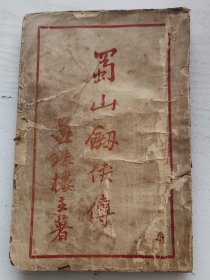 蜀山劔俠傳
還珠樓主著